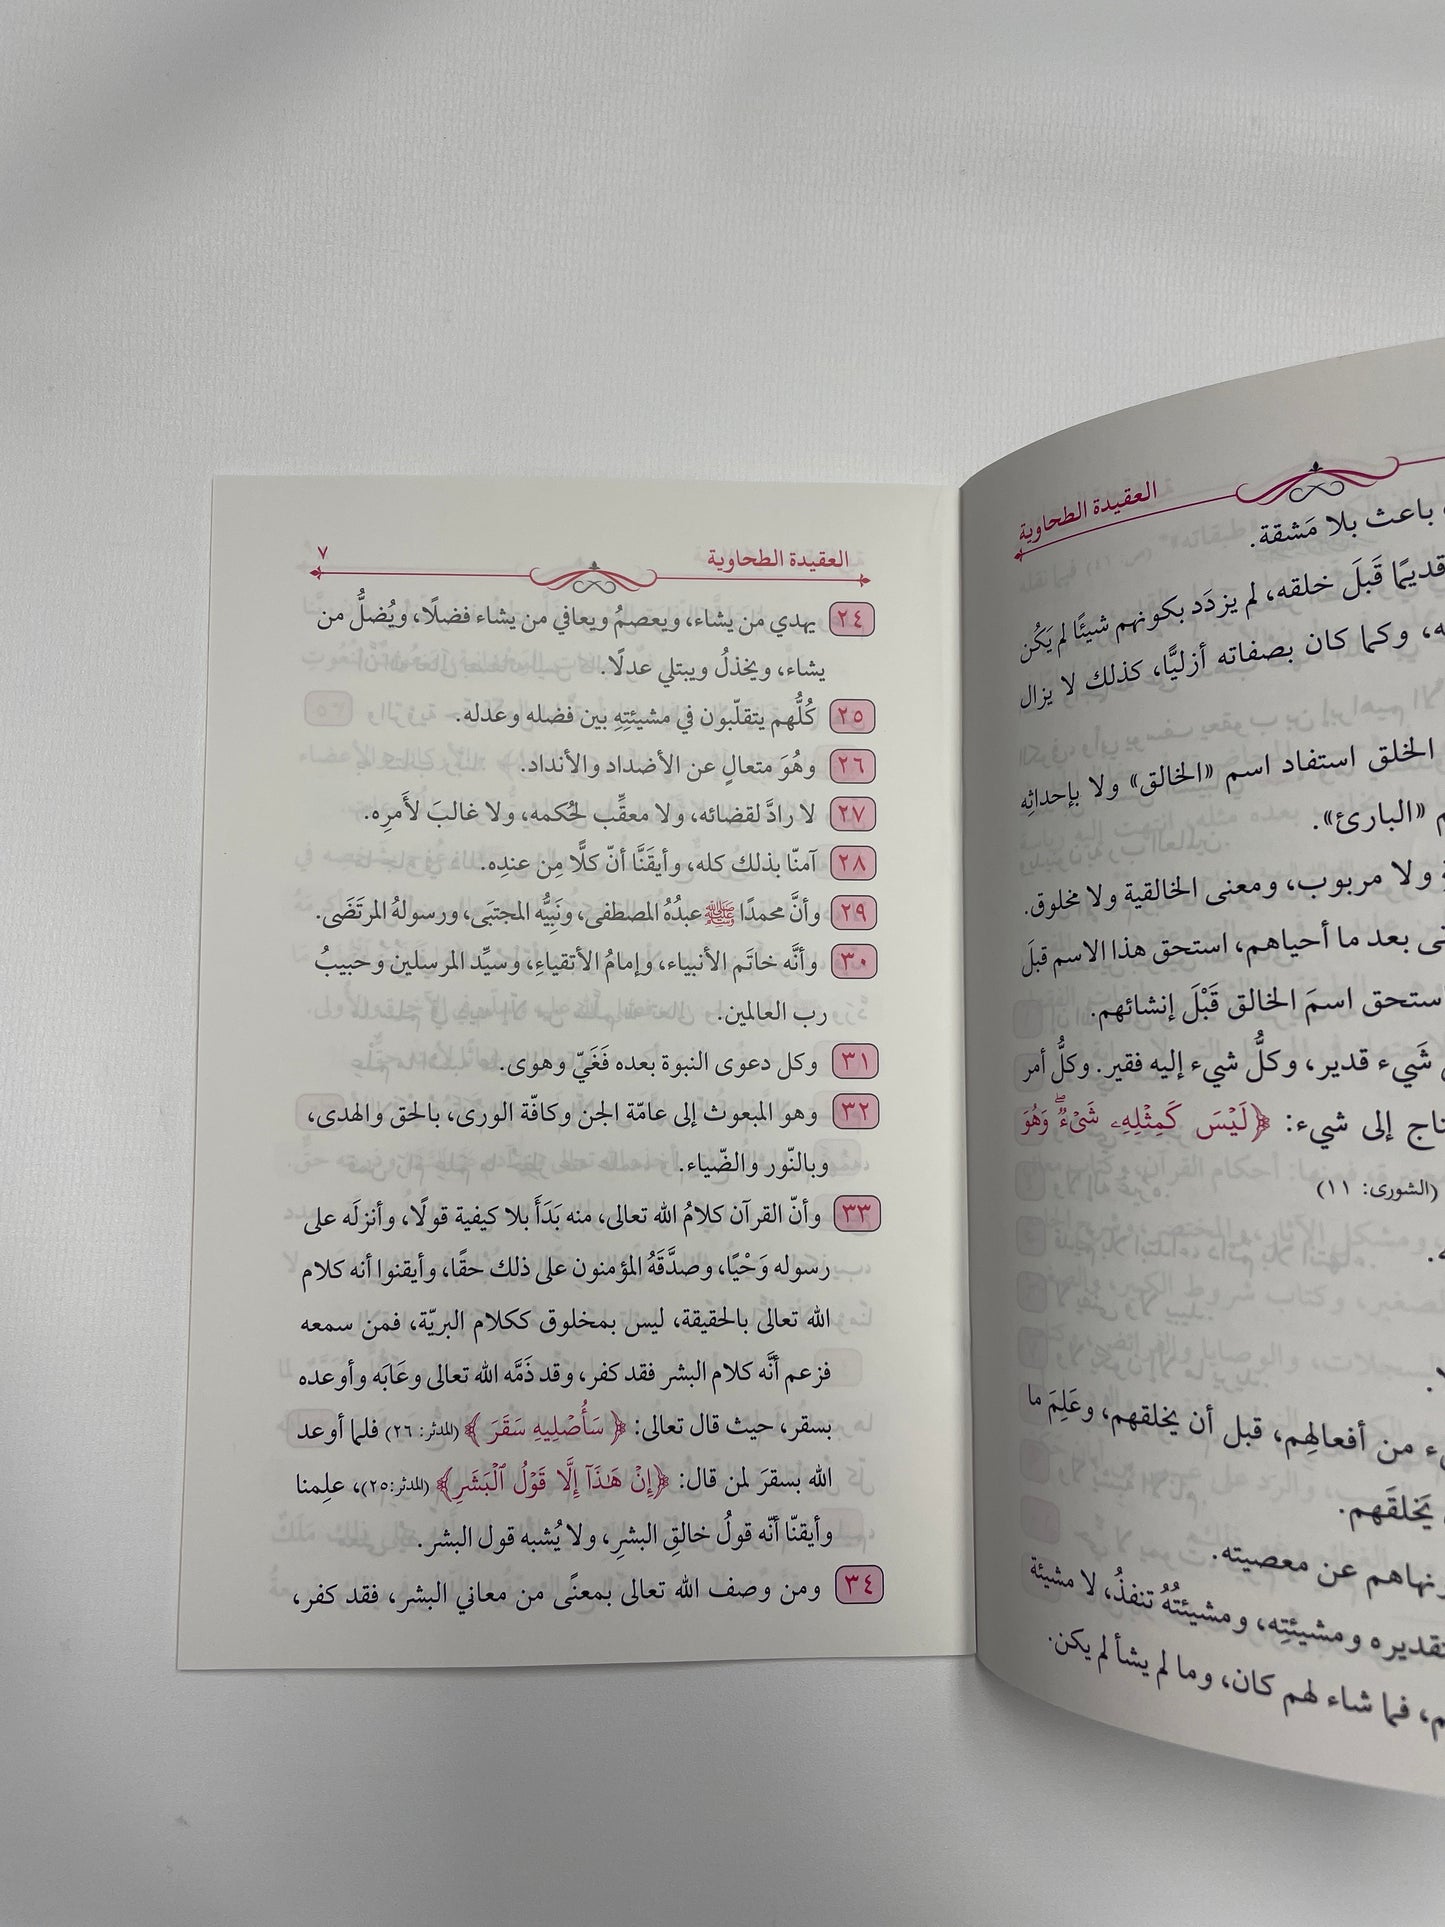 العقيدة الطحاوية
باعث بلا مَشقة.
قديمًا قَبلَ خلقه، لم يزدَد بكونهم شيئًا لم يَكُن
وكما كان بصفاته أزليًّا، كذلك لا يزال
الخلق استفاد اسم «الخالق» ولا بإحداثِه
«البارئ».
ولا مربوب، ومعنى الخالقية ولا مخلوق.
بعد ما أحياهم، استحق هذا الاسم قبلَ
استحق اسمَ الخالق قَبْلَ إنشائهم.
شَيء قدير، وكلُّ شيء إليه فقير. وكلُّ أمر
إلى شيء: ﴿لَيْسَ كَمِثْلِهِۦ شَىْءٌ ۖ وَهُوَ
(الشورى: ١١)
من أفعالِهِم، قبل أن يخلقهم، وعَلِمَ ما
يَخلقَهم.
ونهاهم عن معصيته.
ومشيئتِه، ومشيئتُهُ تنفذُ، لا مشيئة
فما شاء لهم كان، وما لم يشأ لم يكن.
العقيدة الطحاوية ٧
٢٤ يهدي من يشاء، ويعصمُ ويعافي من يشاء فضلًا، ويُضلُّ من
يشاء، ويخذلُ ويبتلي عدلًا.
٢٥ كُلُّهم يتقلّبون في مشيئتِهِ بين فضله وعدله.
٢٦ وهُوَ متعالٍ عن الأضداد والأنداد.
٢٧ لا رادَّ لقضائه، ولا معقِّب لحُكمه، ولا غالبَ لأَمرِه.
٢٨ آمنّا بذلك كله، وأيقَنَّا أنّ كلًّا مِن عندِه.
٢٩ وأنَّ محمدًا ﷺ عبدُهُ المصطفى، ونَبِيُّه المجتبَى، ورسولهُ المرتَضَى.
٣٠ وأنَّه خاتَم الأنبياء، وإمامُ الأتقياءِ، وسيِّد المرسلين وحبيبُ
رب العالمين.
٣١ وكل دعوى النبوة بعده فَغَيّ وهوى.
٣٢ وهو المبعوث إلى عامّة الجن وكافّة الورى، بالحق والهدى،
وبالنّور والضّياء.
٣٣ وأنّ القرآن كلامُ الله تعالى، منه بَدَأَ بلا كيفية قولًا، وأنزلَه على
رسوله وَحْيًا، وصدَّقَهُ المؤمنون على ذلك حقًا، وأيقنوا أنه كلام
الله تعالى بالحقيقة، ليس بمخلوق ككلام البريّة، فمن سمعه
فزعم أنَّه كلام البشر فقد كفر، وقد ذَمَّه الله تعالى وعَابَه وأوعده
بسقر، حيث قال تعالى: ﴿ سَأُصْلِيهِ سَقَرَ ﴾ (المدثر: ٢٦) فلما أوعد
الله بسقرَ لمن قال: ﴿إِنْ هَٰذَآ إِلَّا قَوْلُ ٱلْبَشَرِ﴾ (المدثر:٢٥)، علِمنا
وأيقنّا أنّه قولُ خالقِ البشرِ، ولا يُشبه قول البشر.
٣٤ ومن وصف الله تعالى بمعنًى من معاني البشر، فقد كفر،